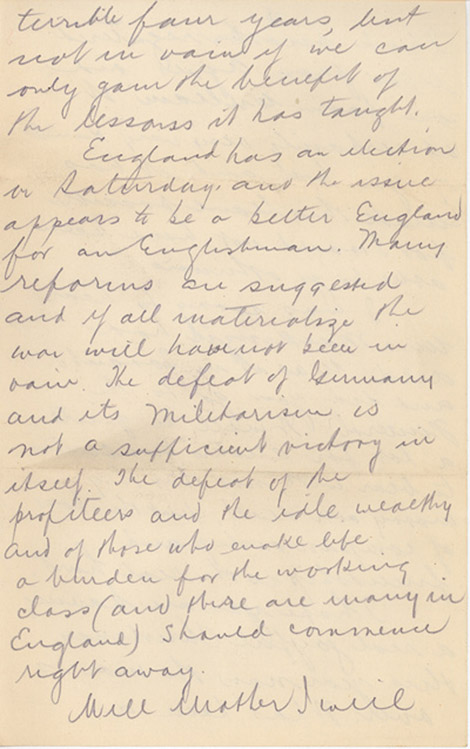 terrible four years, but
not in vain if we can
only gain the benefit of
the lessons it has taught.
England has an election
on Saturday. and the issue
appears to be a better England
for an Englishman. Many
reforms are suggested
and if all materialize the
war will have not been in
vain. The defeat of Germany
and its Militarism is
not a sufficient victory in
itself. The defeat of the
profiteers and the idle wealthy
and of those who make life
a burden for the working
class (and there are many in
England) should commence
right away.
Well Mother I will